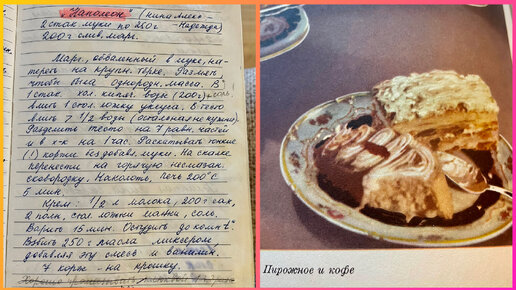 "Наполеон" (нина Алекс-
2 стак. муки по 250г Надежда)
200 г слив. марг.
Марг., обвалянный в муке, на-
тереть на крупн. терке. Размеш.,
чтобы была однородн. масса. В
1 стак. хол. кипяч. воды (200г) соль.
Влить 1 стол. ложку уксуса. В тесто
влить 7 1/2 воды (остальная не нужна).
Разделить тесто на 7 равн. частей
и в х-к на 1 час. Раскатывать тонкие
(!) коржи без добавл. муки. На скалке
перенести на горячую несмазан.
сковородку. Наколоть, печь 200°С
5 мин.
Крем: 1/2 л молока, 200 г сах.,
2 полн. стол. ложки манки, соль.
Варить 15 мин. Остудить до комн. t°.
Взбить 250 г масла миксером,
добавляя эту смесь и ванилин.
7 корж - на крошку.
Хорошо
Пирожное и кофе